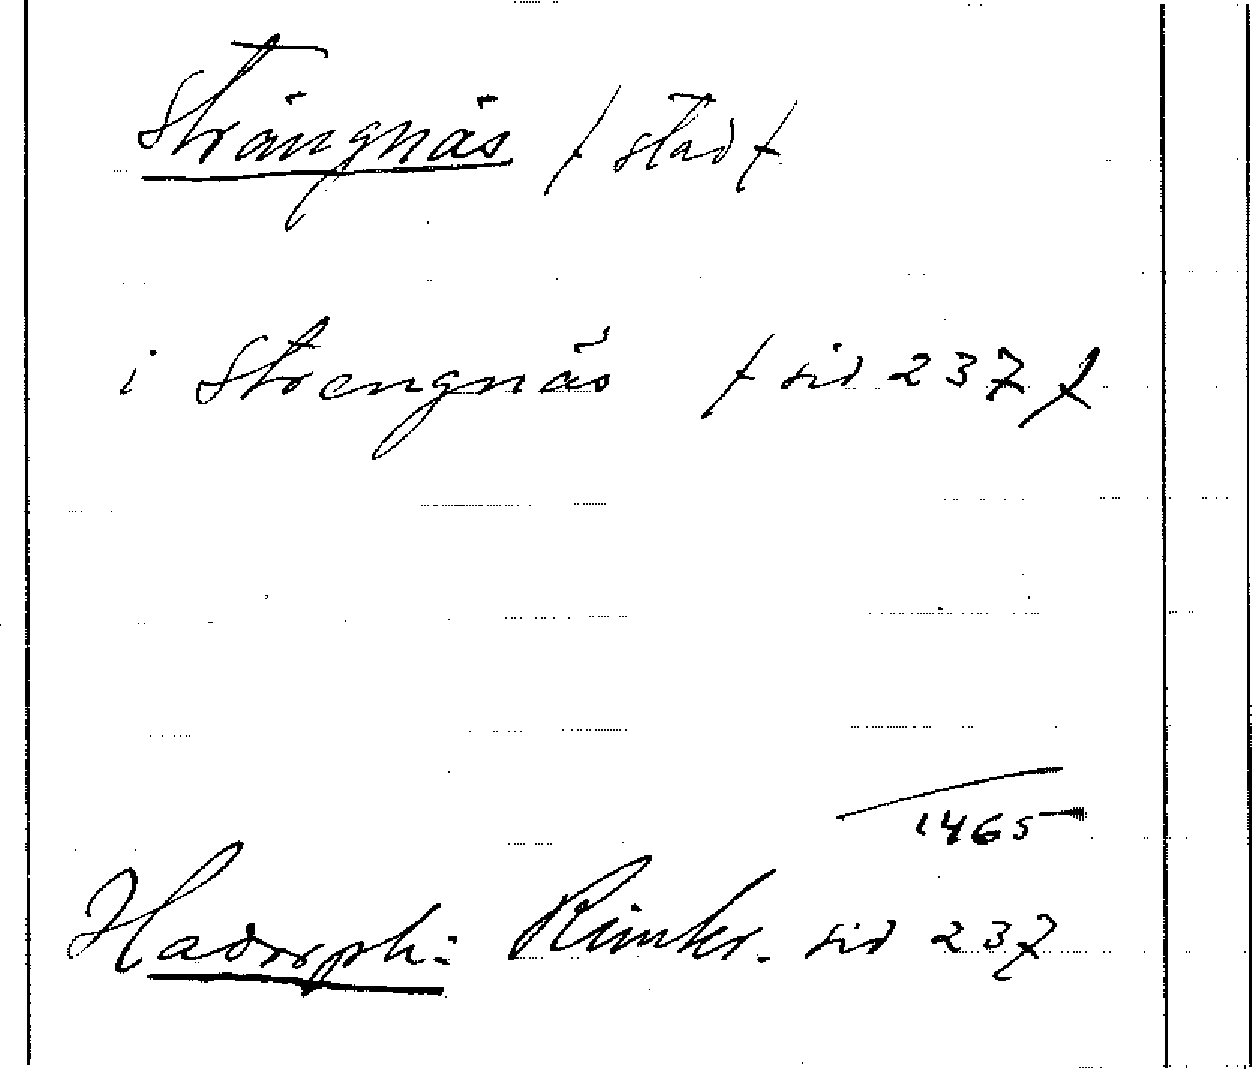 Strängnäs / stad /
i Strengnäs / sid 237 /
1465
Hadorph: Rimkr. sid 237